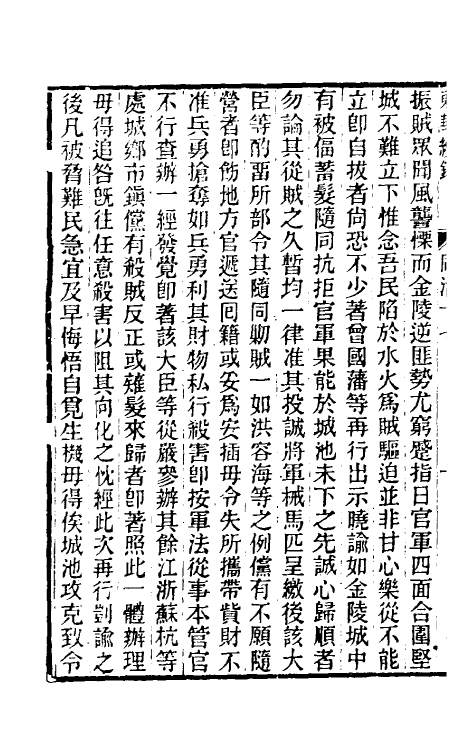 振賊眾聞風讋慄而金陵逆匪勢尤窮蹙指日官軍四面合圍堅
城不難立下惟念吾民陷於水火為賊驅迫並非甘心樂從不能
立卽自拔者尙恐不少著曾國藩等再行出示曉諭如金陵城中
有被偪蓄髮隨同抗拒官軍果能於城池未下之先誠心歸順者
勿論其從賊之久暫均一律准其投誠將軍械馬匹呈繳後該大
臣等酌留所部令其隨同勦賊一如洪容海等之例儻有不願隨
營者卽飭地方官遞送回籍或妥為安插毋令失所攜帶貲財不
准兵勇搶奪如兵勇利其財物私行殺害卽按軍法從事本管官
不行查辦一經發覺卽著該大臣等從嚴參辦其餘江浙蘇杭等
處城鄉市鎮儻有殺賊反正或薙髮來歸者卽著照此一體辦理
毋得追咎旣往任意殺害以阻其向化之忱經此次再行剴諭之
後凡被脅難民急宜及早悔悟自覓生機毋得俟城池攻克致令